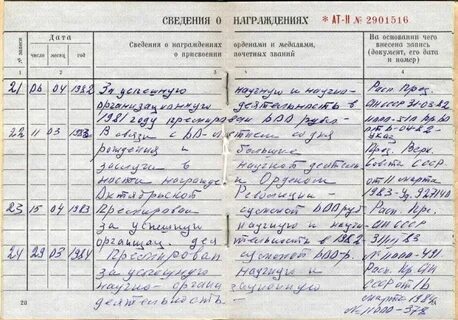 СВЕДЕНИЯ О НАГРАЖДЕНИЯХ * АТ-II № 2901516
№ записи
Дата
число месяц год
Сведения о награждениях орденами и медалями,
о присвоении почетных званий
На основании чего внесена запись (документ, его дата и номер)
1 2 3 4
21 06 04 1982 За успешную научную и научно-
организационную деятельность в
1981 году премирован
22 11 03 1983 В связи с 60-летием со дня
рождения и большие
заслуги в научной деятель-
ности награжден Орденом
Октябрьской Революции
23 15 04 1983 Премирован суммой руб
за успешную научную и научн
организац. деятельность в 1982
24 29 03 1984 Премирован суммой
за успешную научную и
научно-организационную
деятельность
Расп. През.
АН СССР
През. Верх.
Совета СССР
от 11 марта
1983
Расп. Пр.
АН СССР
№ 11000-491
Расп. Пр. АН
СССР от
марта 1984
№ 11000-378
20